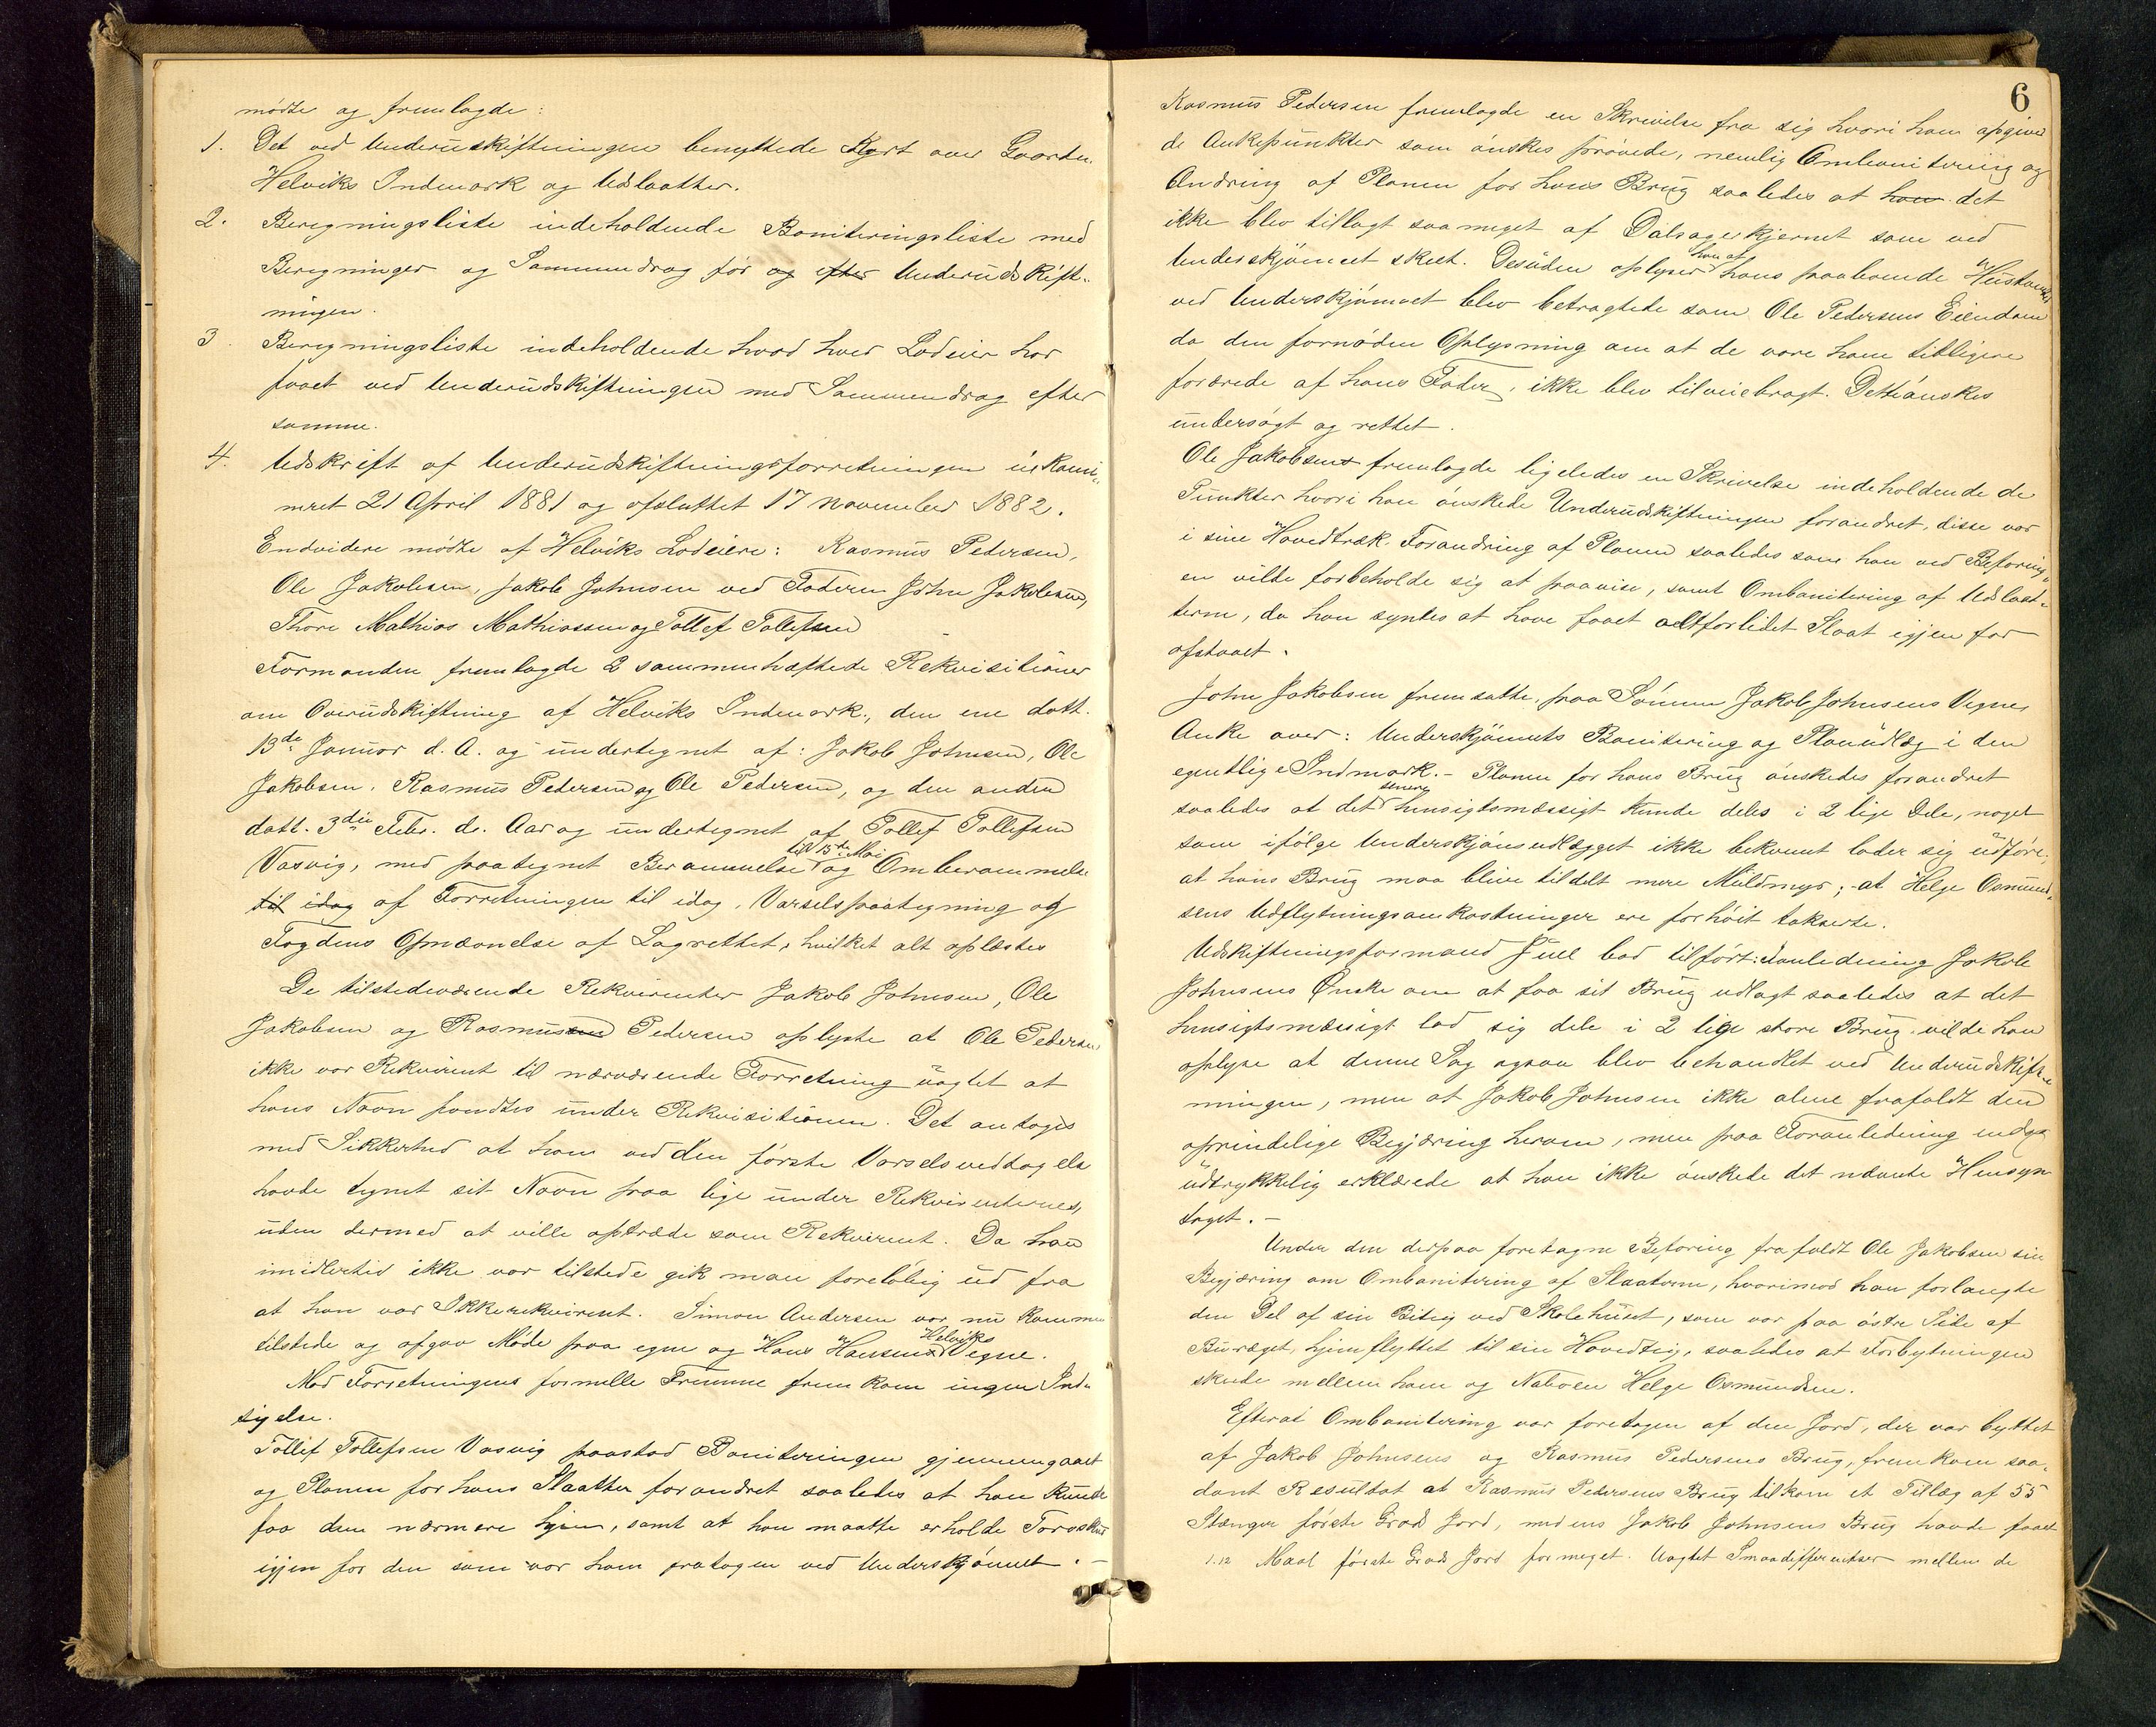 mødte og fremlagde:
1. Det ved Underudskiftningen benyttede Kart over Gaarden
Helviks Indmark og Udslaatter.
2. Beregningsliste indeholdende Boniteringsliste med
Beregninger og Sammendrag før og efter Underudskift-
ningen.
3. Beregningsliste indeholdende hvad hver Lodeier har
faaet ved Underudskiftningen med Sammendrag efter
samme.
4. Udskrift af Underudskiftningsforretningen inkami-
neret 21 April 1881 og afsluttet 17 November 1882.
Endvidere mødte af Helviks Lodeiere: Rasmus Pedersen,
Ole Jakobsen, Jakob Johnsen ved Faderen John Jakobsen,
Thore Mathias Mathiassen og Tollef Tollefsen
Formanden fremlagde 2 sammenhæftede Rekvisitioner
om Overudskiftning af Helviks Indmark, den ene datt.
13de Januar d. A. og undertegnet af: Jakob Johnsen, Ole
Jakobsen, Rasmus Pedersen og Ole Pedersen, og den anden
datt. 3die Febr. ds. Aar og undertegnet af Tollef Tollefsen
Vasvig, med paategnet Berammelse til 15de Mai og Omberammelse
til idag af Forretningen til idag, Varselspaategning og
Fogdens Opnævnelse af Lagrettet, hvilket alt oplæstes
De tilstedeværende Rekvirenter Jakob Johnsen, Ole
Jakobsen og Rasmussen Pedersen oplyste at Ole Pedersen
ikke var Rekvirent til nærværende Forretning uagtet at
hans Navn fandtes under Rekvisitionen. Det antages
med Sikkerhed at han ved den første Varselsvedtagelse
havde tegnet sit Navn paa lige under Rekvirenternes,
uden dermed at ville optræde som Rekvirent. Da han
imidlertid ikke var tilstede gik man foreløbig ud fra
at han var Ikkerekvirent. Simon Andersen var nu kommen
tilstede og afgav Møde paa egne og Hans Hansens Helviks Vegne.
Mod Forretningens formelle Fremme fremkom ingen Ind-
sigelse.
Tollef Tollefsen Vasvig paastod Boniteringen gjennemgaaet
og Planen for hans Slaatter forandret saaledes at han kunde
faa dem nærmere hjem, samt at han maatte erholde Torvskur
igjen for den som var ham fratagen ved Underskjønnet. -
6
Rasmus Pedersen fremlagde en Skrivelse fra sig hvori han opgiver
de Ankepunkter som ønskes prøvede, nemlig Ombonitering og
Ændring af Planen for hans Brug saaledes at han det
ikke blev tillagt saa meget af Dalsagerkjernet som ved
Underskjønnet skeet. Desuden oplyser han at hans paaboende Hustomt
ved Underskjønnet blev betragtede som Ole Pedersens Eiendom
da den fornøden Oplysning om at de vare ham tidligere
forærede af hans Fader, ikke blev tilveiebragt. Dette ønskes
undersøgt og rettet.
Ole Jakobsens fremlagde ligeledes en Skrivelse indeholdende de
Punkter hvori han ønskede Underudskiftningen forandret, disse var
i sine Hovedtræk. Forandring af Planen saaledes som han ved Befaring-
en vilde forbeholde sig at paavise, samt Ombonitering af Udslaat-
terne, da han syntes at have faaet altfor lidet Slaat igjen for
afstaaet.
John Jakobsen fremsatte, paa Sønnen Jakob Johnsens Vegne,
Anke over: Underskjønnets Bonitering og Planudlæg i den
egentlige Indmark. - Planen for hans Brug ønskedes forandret
saaledes at det senere hensigtsmæssigt kunde deles i 2 lige Dele, noget
som ifølge Underskjønsudlægget ikke bekvemt lader sig udføre;
at hans Brug maa blive tildelt mere Muldmyr; - at Helge Osmund-
sens Udflytningsomkostninger ere for høit takserte.
Udskiftningsformand Juel bad tilført: I Anledning Jakob
Johnsens Ønske om at faa sit Brug udlagt saaledes at det
hensigtsmæssigt lod sig dele i 2 lige store Brug vilde han
oplyse at denne Sag ogsaa blev behandlet ved Underudskift-
ningen, men at Jakob Johnsen ikke alene frafaldt den
oprindelige Begjæring herom, men paa Foranledning endog
udtrykkelig erklærede at han ikke ønskede det nævnte Hensyn
taget. -
Under den derpaa foretagne Befaring frafaldt Ole Jakobsen sin
Begjæring om Ombonitering af Slaatterne, hvorimod han forlangte
den Del af sin Biteig ved Skolehuset, som var paa østre Side af
hjemflyttet til sin Hovedteig, saaledes at Forbytningen
skede mellem ham og Naboen Helge Osmundsen.
Efterat Ombonitering var foretagen af den Jord, der var byttet
af Jakob Johnsens og Rasmus Pedersens Brug, fremkom saa-
dant Resultat at Rasmus Pedersens Brug tilkom et Tillæg af 55
Stænger første Grads Jord, medens Jakob Johnsens Brug havde faaet
1.12 Maal første Grads Jord formeget. Uagtet Smaadifferentser mellem de